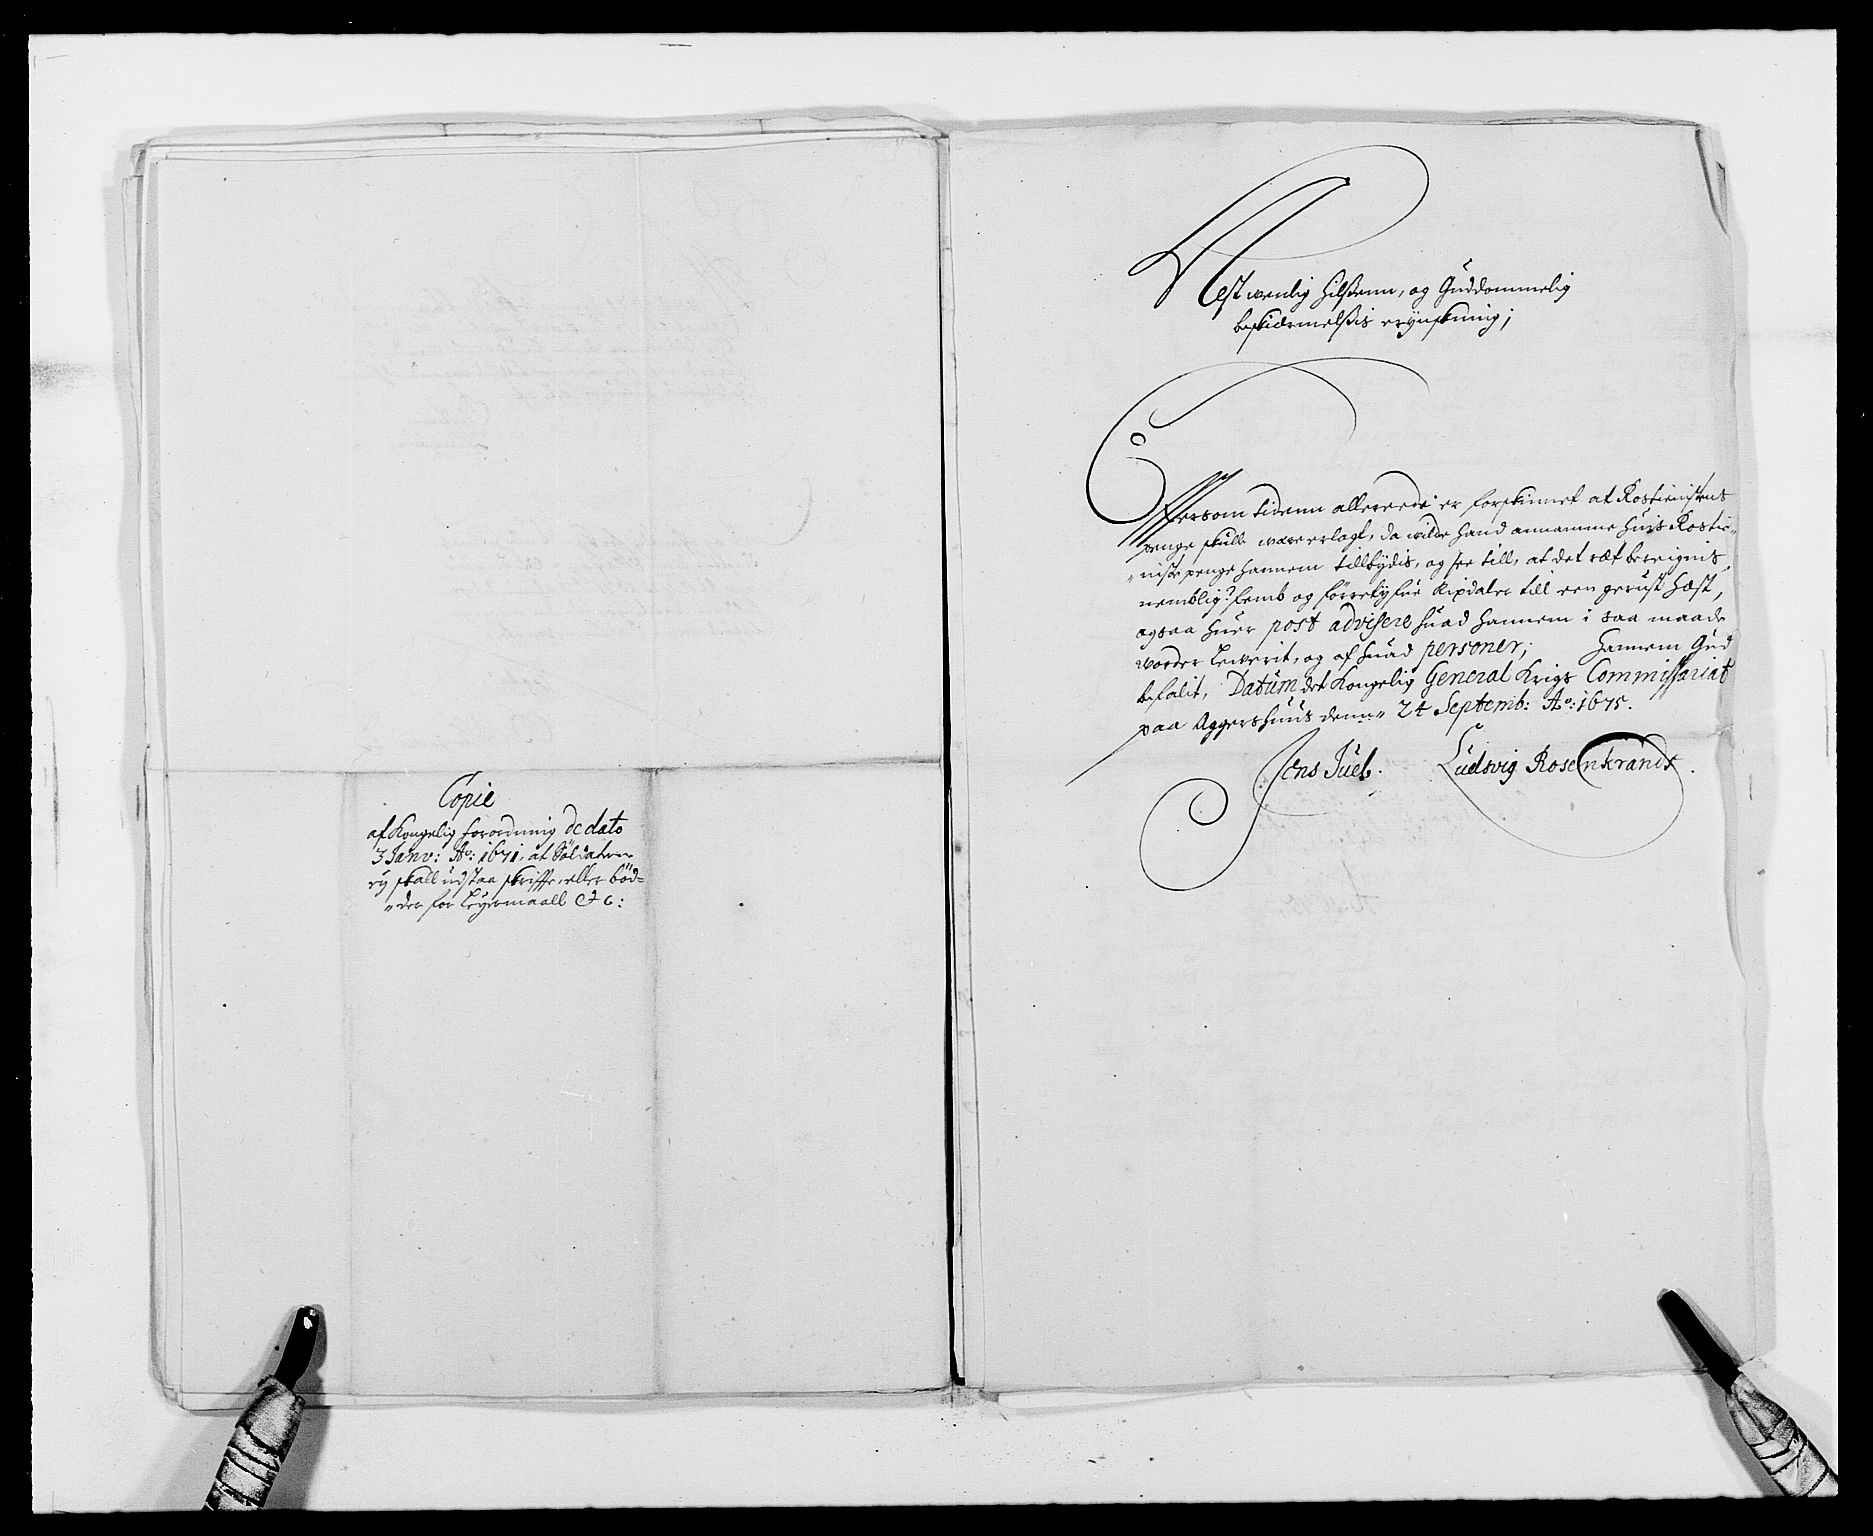 Copie
af Kongelig forordning de dato
3 Janv: Ao: 1671, at Soldaterne
ey skall udstaa skrifte, eller bød=
=der for Leyermaall etc:
Nest wenlig Hilssenn, og Guddommelig
beskiermelssis erynskning;
Efftersom tidenn allereede er forskinnet at Rostienistens
penge skulle were erlagt, da wilde hand annamme huis Rostie=
=niste penge hannem tillbydis, og see till, at det ræt bereignis
nemblig: femb og førretyfue Rixdaler till een gerust Hest,
ogsaa huer post advisere huad hannem i saa maade
worder Leverit, og af huad personer; Hannem Gud
befalit, Datum det Kongelig General Krigs Commissariat
paa Aggershuus denn 24 Septemb: Ao: 1675.
Jens Juel. Ludsvig Rosenkrands.